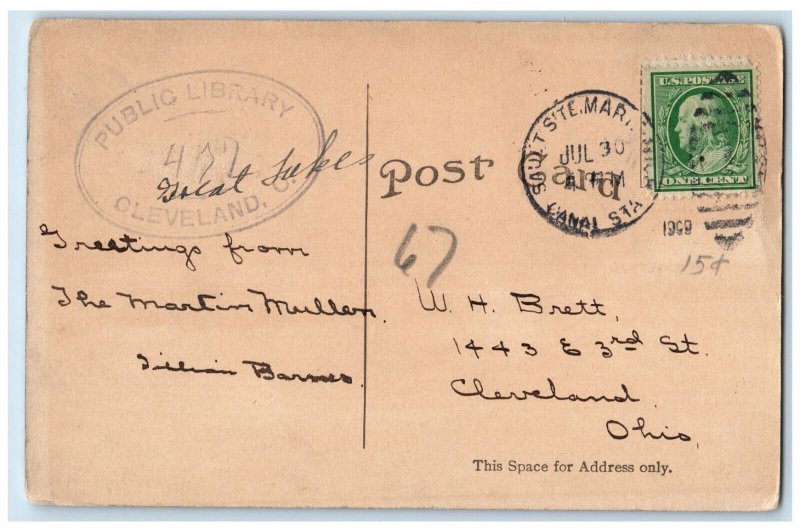 PUBLIC LIBRARY
CLEVELAND, O.
Great Lakes
Post Card
SAULT STE. MARIE
JUL 30
CANAL STA
1909
U.S. POSTAGE
ONE CENT
15¢
67
Greetings from
The Martin Mullen.
Lillian Barnes.
W. H. Brett,
1443 E 3rd St.
Cleveland
Ohio,
This Space for Address only.